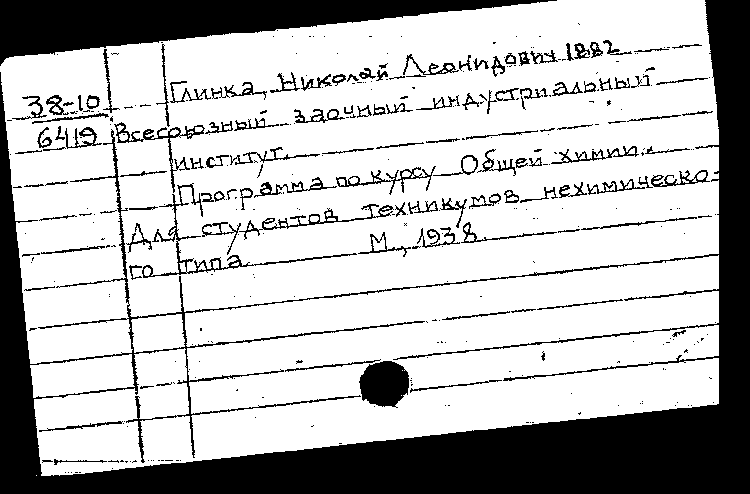 Глинка, Николай Леонидович 1882
38-10
6419
Всесоюзный заочный индустриальный
институт.
Программа по курсу Общей химии.
Для студентов техникумов нехимическо-
го типа М., 1938.